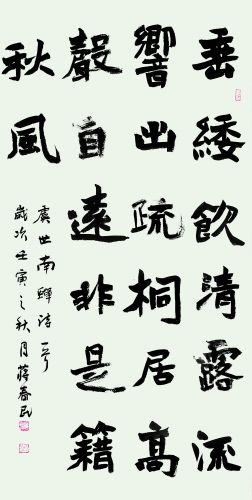 垂緌飲清露流
響出疏桐居高
聲自遠非是籍
秋風
虞世南蟬詩一首
歲次壬寅之秋月蔣春民